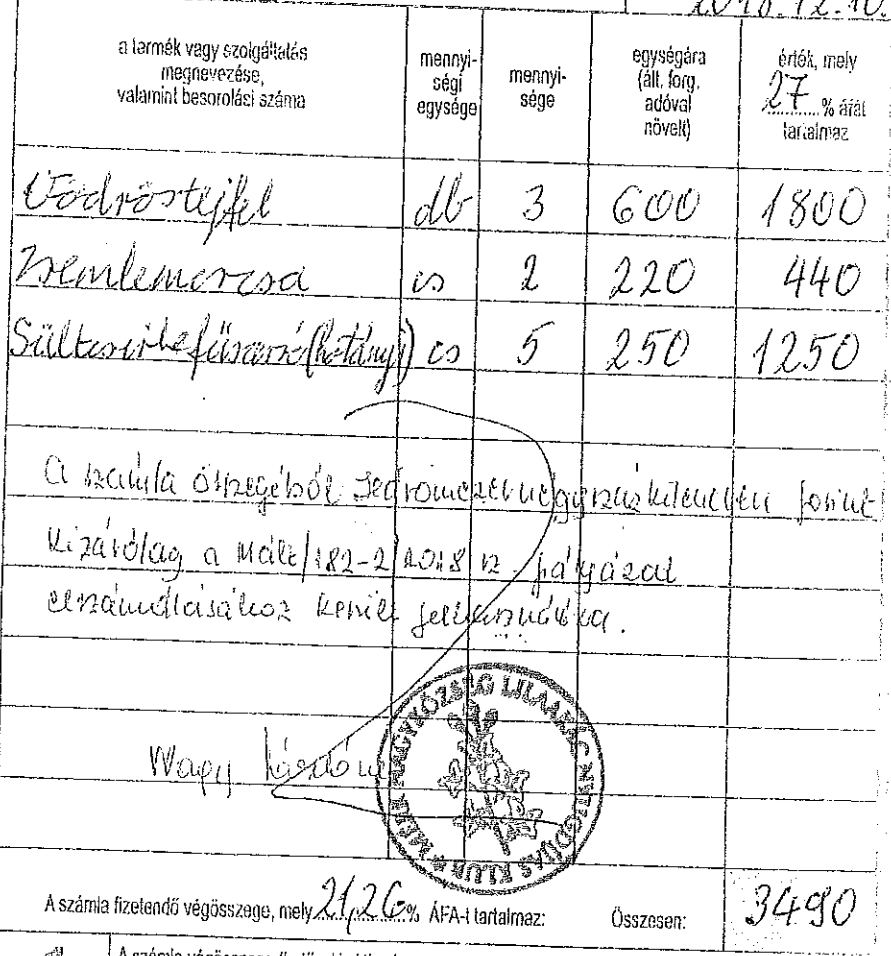 2018.12.10.
a termék vagy szolgáltatás
megnevezése,
valamint besorolási száma
mennyi-
ségi
egysége
mennyi-
sége
egységára
(ált. forg.
adóval
növelt)
érték, mely
27 % áfát
tartalmaz
Vödröstejfel db 3 600 1800
Zsemlemorzsa cs 2 220 440
Sültcsirkefűszersó (kotányi) cs 5 250 1250
A számla összegéből
forint
kizárólag a Mále/182-2/2018 sz. pályázat
elszámolásához kerül felhasználásra.
Nagy
NAGYKÖZSÉG LILAAKÁC NYUGDÍJAS KLUB
A számla fizetendő végösszege, mely 21,26 % ÁFA-t tartalmaz: Összesen: 3490